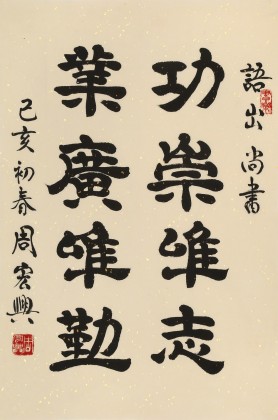 語出尚書
功崇唯志
業廣唯勤
己亥初春周宏興